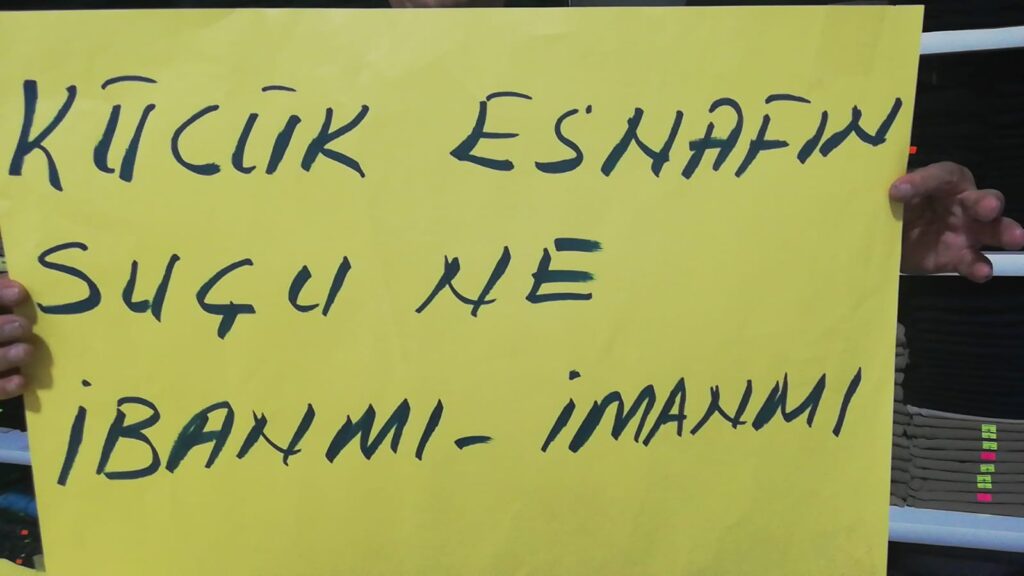 KÜCÜK ESNAFIN
SUÇU NE
İBANMI- İMANMI